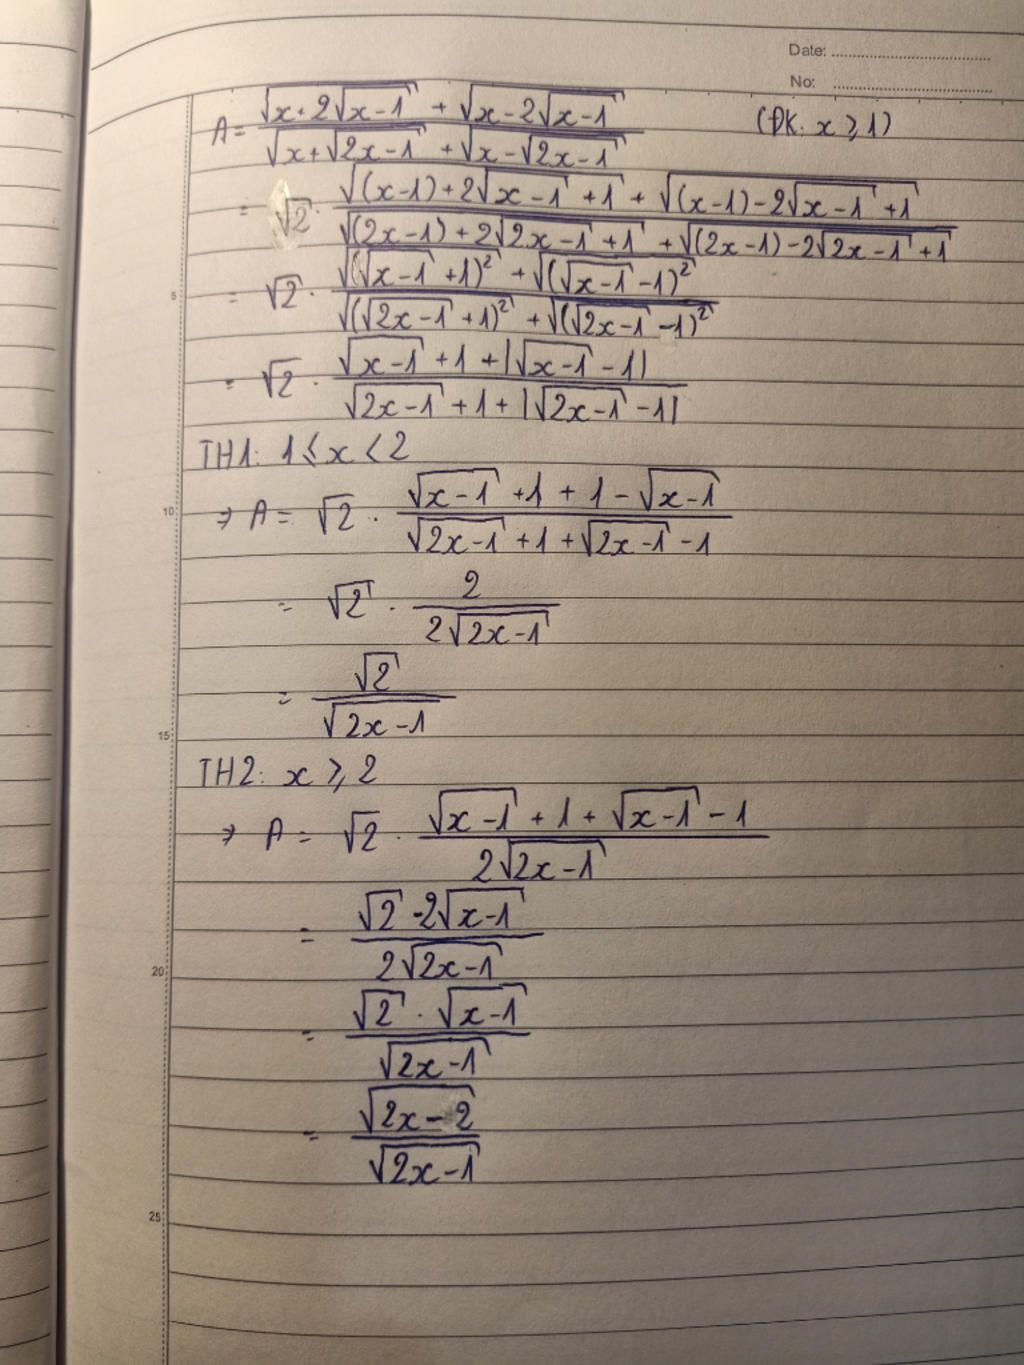 Date: ..............................
No: ..............................
A = \frac{\sqrt{x+2\sqrt{x-1}} + \sqrt{x-2\sqrt{x-1}}}{\sqrt{x+\sqrt{2x-1}} + \sqrt{x-\sqrt{2x-1}}} (ĐK: x ⩾ 1)
= \sqrt{2} \cdot \frac{\sqrt{(x-1)+2\sqrt{x-1}+1} + \sqrt{(x-1)-2\sqrt{x-1}+1}}{\sqrt{(2x-1)+2\sqrt{2x-1}+1} + \sqrt{(2x-1)-2\sqrt{2x-1}+1}}
5 = \sqrt{2} \cdot \frac{\sqrt{(\sqrt{x-1}+1)^2} + \sqrt{(\sqrt{x-1}-1)^2}}{\sqrt{(\sqrt{2x-1}+1)^2} + \sqrt{(\sqrt{2x-1}-1)^2}}
= \sqrt{2} \cdot \frac{\sqrt{x-1}+1+|\sqrt{x-1}-1|}{\sqrt{2x-1}+1+|\sqrt{2x-1}-1|}
TH1: 1 ⩽ x < 2
10 ⇒ A = \sqrt{2} \cdot \frac{\sqrt{x-1}+1+1-\sqrt{x-1}}{\sqrt{2x-1}+1+\sqrt{2x-1}-1}
= \sqrt{2} \cdot \frac{2}{2\sqrt{2x-1}}
= \frac{\sqrt{2}}{\sqrt{2x-1}}
15
TH2: x ⩾ 2
⇒ A = \sqrt{2} \cdot \frac{\sqrt{x-1}+1+\sqrt{x-1}-1}{2\sqrt{2x-1}}
= \frac{\sqrt{2} \cdot 2\sqrt{x-1}}{2\sqrt{2x-1}}
20
= \frac{\sqrt{2} \cdot \sqrt{x-1}}{\sqrt{2x-1}}
= \frac{\sqrt{2x-2}}{\sqrt{2x-1}}
25